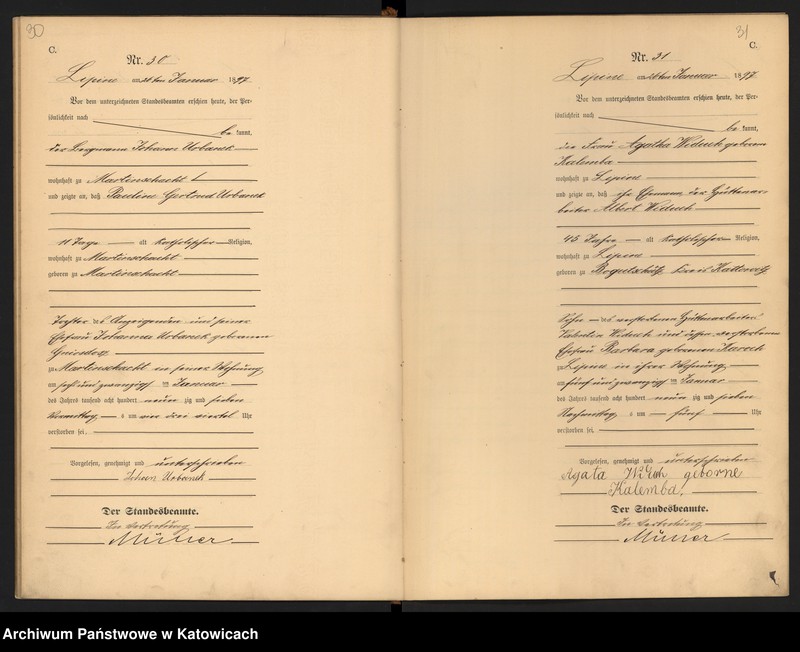 30
C.
Nr. 30
Lipine am 26ten Januar 1897
Vor dem unterzeichneten Standesbeamten erschien heute, der Per-
sönlichkeit nach
be kannt,
der Bergmann Johann Urbanek
wohnhaft zu Martinschacht
und zeigte an, daß Pauline Gertrud Urbanek
11 Tage alt katholischer Religion,
wohnhaft zu Martinschacht
geboren zu Martinschacht
Tochter des Anzeigenden und seiner
Ehefrau Johanna Urbanek geborenen
zu Martinschacht in seiner Wohnung
am sechs und zwanzigsten Januar
des Jahres tausend acht hundert neun zig und sieben
Vormittag s um drei viertel Uhr
verstorben sei.
Vorgelesen, genehmigt und unterschrieben
Urbanek
Der Standesbeamte.
In Vertretung
Müller
31
C.
Nr. 31
Lipine am 26ten Januar 1897
Vor dem unterzeichneten Standesbeamten erschien heute, der Per-
sönlichkeit nach
be kannt,
die Frau Agatha Widuch geborene
Kalemba
wohnhaft zu Lipine
und zeigte an, daß ihr Ehemann, der Hüttenar-
beiter Albert Widuch
45 Jahre alt katholischer Religion,
wohnhaft zu Lipine
geboren zu Bogutschütz Kreis Kattowitz
Sohn des verstorbenen Hüttenarbeiters
Valentin Widuch und dessen verstorbenen
Ehefrau Barbara geborenen
zu Lipine in ihrer Wohnung,
am fünf und zwanzigsten Januar
des Jahres tausend acht hundert neun zig und sieben
Nachmittag s um fünf Uhr
verstorben sei.
Vorgelesen, genehmigt und unterschrieben
Agata geborne
Kalemba!
Der Standesbeamte.
In Vertretung
Müller
Archiwum Państwowe w Katowicach